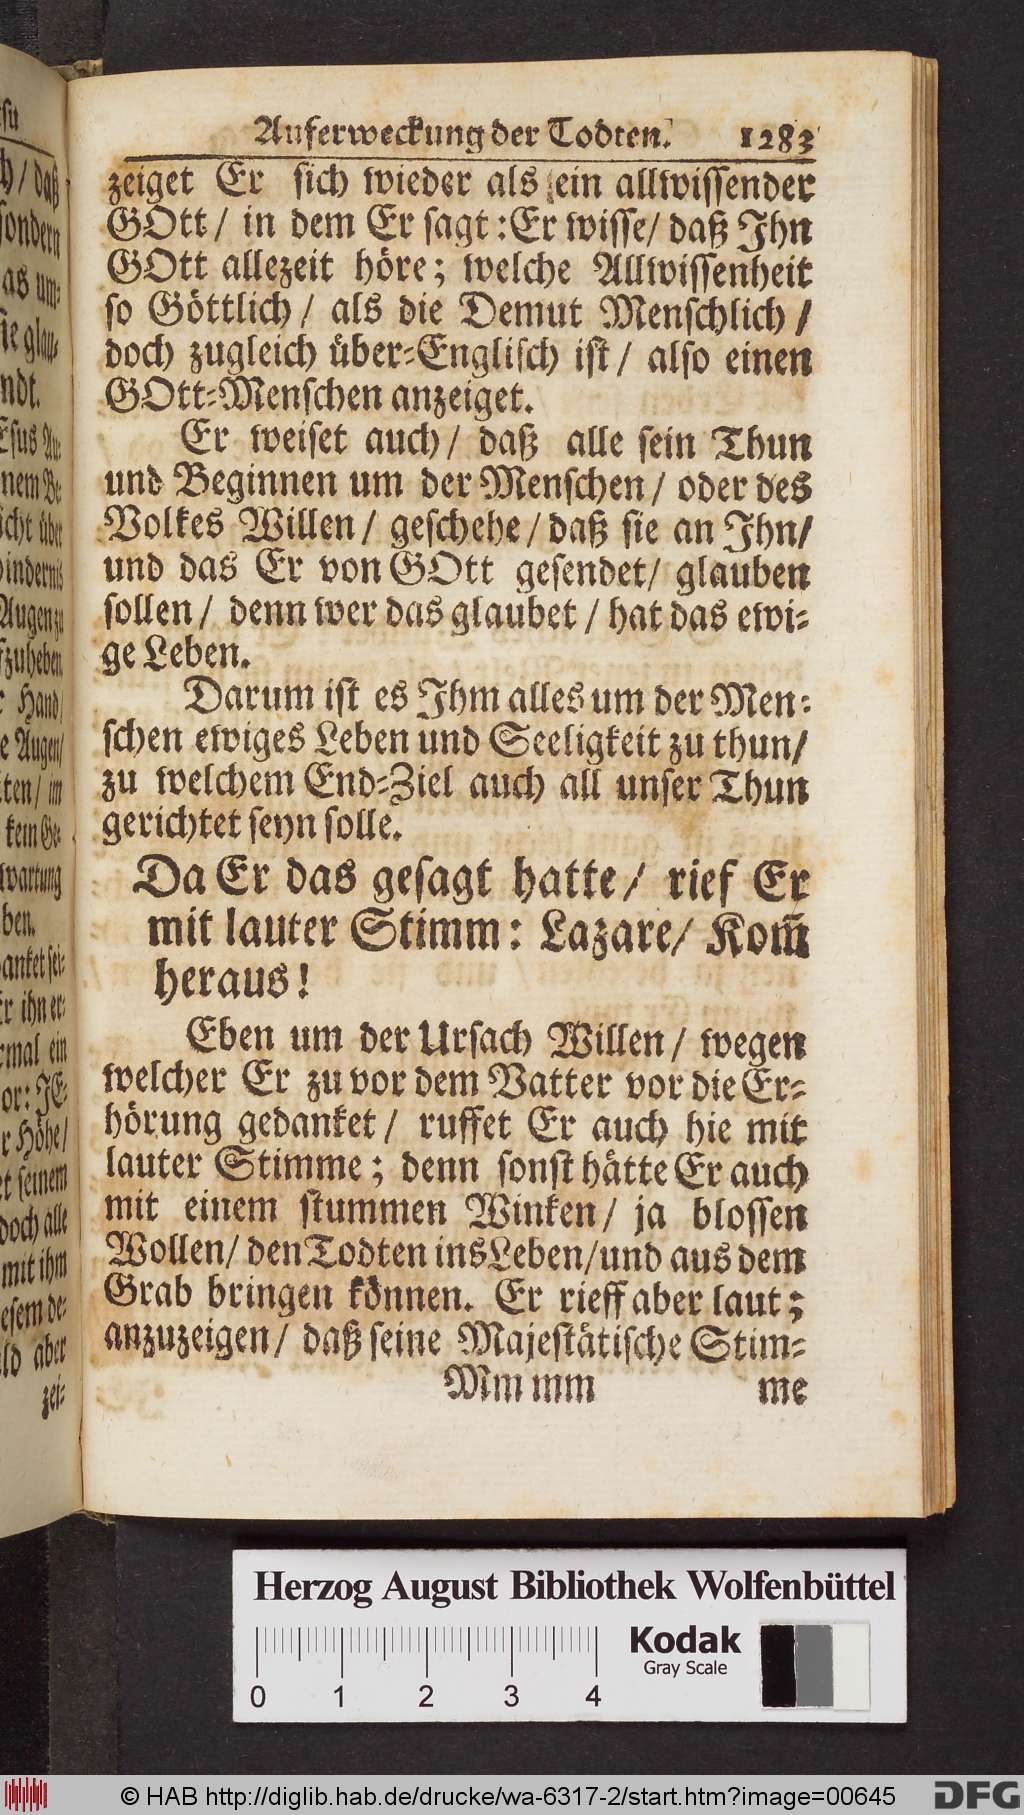 Auferweckung der Todten. 1283
zeiget Er sich wieder als ein allwissender
GOtt/ in dem Er sagt: Er wisse/ daß Ihn
GOtt allezeit höre; welche Allwissenheit
so Göttlich/ als die Demut Menschlich/
doch zugleich über-Englisch ist/ also einen
GOtt-Menschen anzeiget.
Er weiset auch/ daß alle sein Thun
und Beginnen um der Menschen/ oder des
Volkes Willen/ geschehe/ daß sie an Ihn/
und das Er von GOtt gesendet/ glauben
sollen/ denn wer das glaubet/ hat das ewi-
ge Leben.
Darum ist es Ihm alles um der Men-
schen ewiges Leben und Seeligkeit zu thun/
zu welchem End-Ziel auch all unser Thun
gerichtet seyn solle.
Da Er das gesagt hatte/ rief Er
mit lauter Stimm: Lazare/ Kom̃
heraus!
Eben um der Ursach Willen/ wegen
welcher Er zu vor dem Vatter vor die Er-
hörung gedanket/ ruffet Er auch hie mit
lauter Stimme; denn sonst hätte Er auch
mit einem stummen Winken/ ja blossen
Wollen/ den Todten ins Leben/ und aus dem
Grab bringen können. Er rieff aber laut;
anzuzeigen/ daß seine Majestätische Stim-
Mm mm me
h/ daß
sondern
as um-
sie glau-
ndt.
Esus
nem Be
icht über
indernis
Augen zu
fzuheben
r Hand/
e Augen/
ten/ im
kein Ge-
wartung
ben.
anket sei-
Er ihn er-
rmal ein
or: JE-
r Höhe/
et seinem
doch alle
mit ihm
esem de-
ld aber
zei-
Herzog August Bibliothek Wolfenbüttel
Kodak
Gray Scale
0 1 2 3 4
© HAB http://diglib.hab.de/drucke/wa-6317-2/start.htm?image=00645
DFG